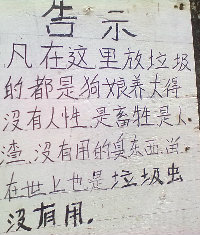 告示
凡在这里放垃圾
的都是狗娘养大得
没有人性是畜牲是人
渣没有用的臭东西.
在世上也是垃圾虫
没有用.